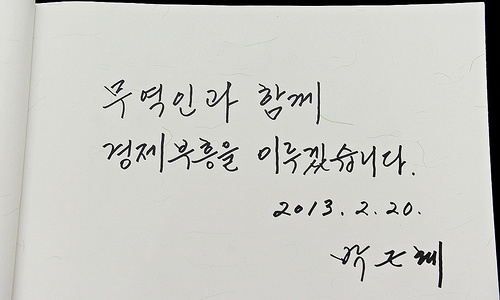 무역인과 함께
경제부흥을 이루겠습니다.
2013. 2. 20.
박근혜